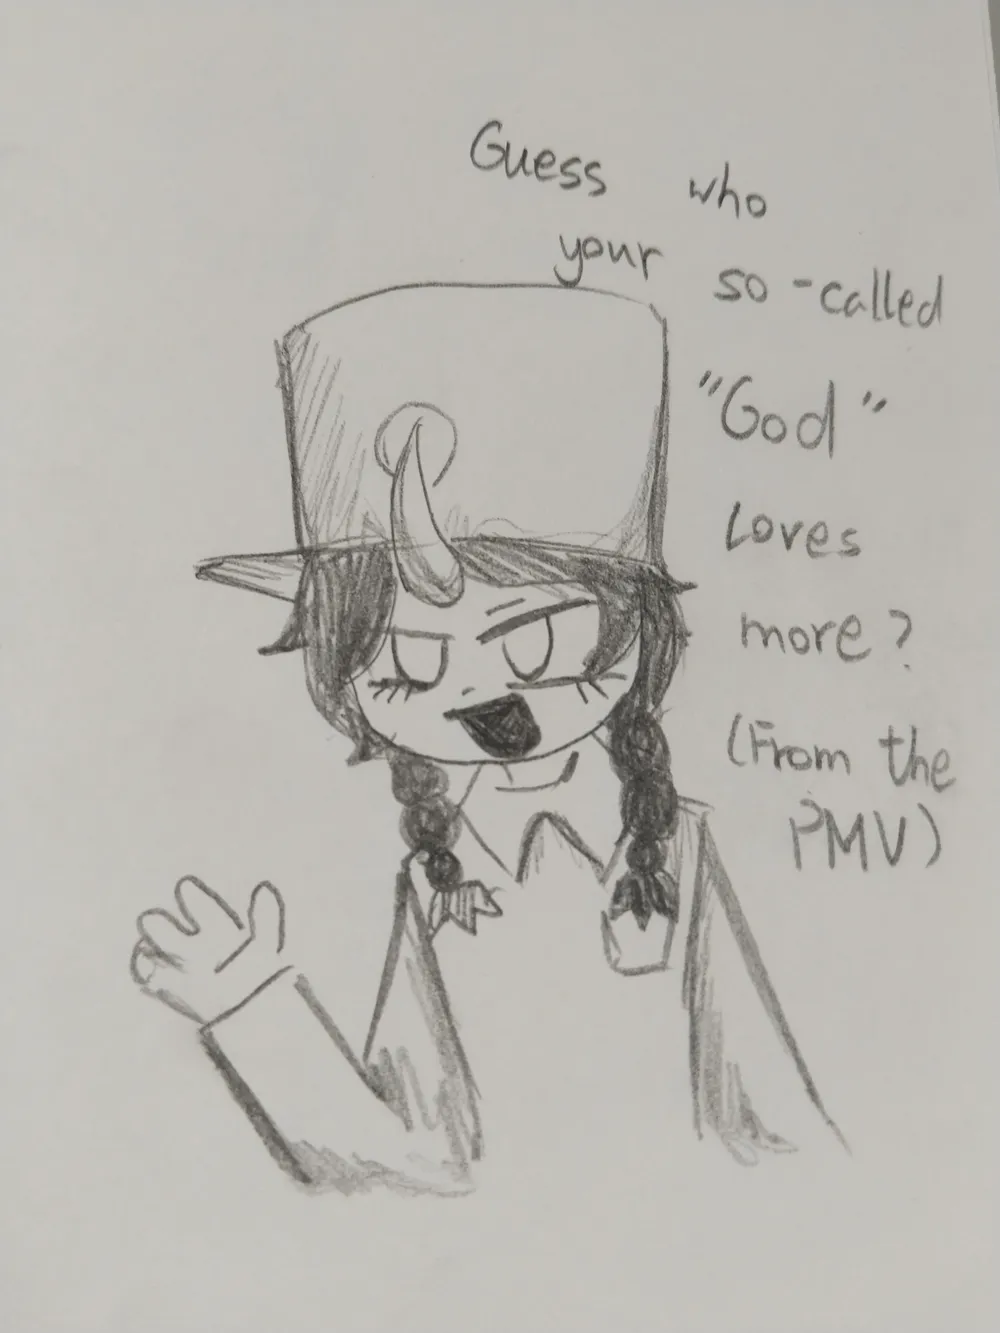 Guess who
your so-called
"God"
Loves
more?
(From the
PMV)